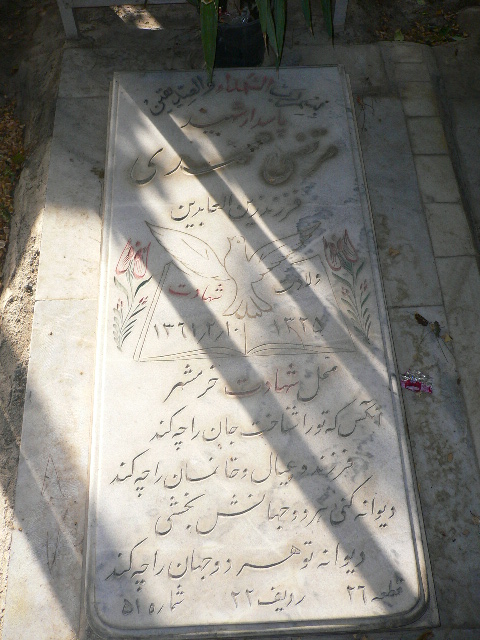 بسم رب الشهداء والصدیقین
پاسدار شهید
مرتضی
فرزند زین العابدین
ولادت شهادت
۱۳۳۵ ۱۳۶۱,۲,۱۰
محل شهادت خرمشهر
آنکس که تو را شناخت جان را چه کند
فرزند و عیال و خانمان را چه کند
دیوانه کنی هر دو جهانش بخشی
دیوانه تو هر دو جهان را چه کند
قطعه ۲۶ ردیف ۲۲ شماره ۵۱